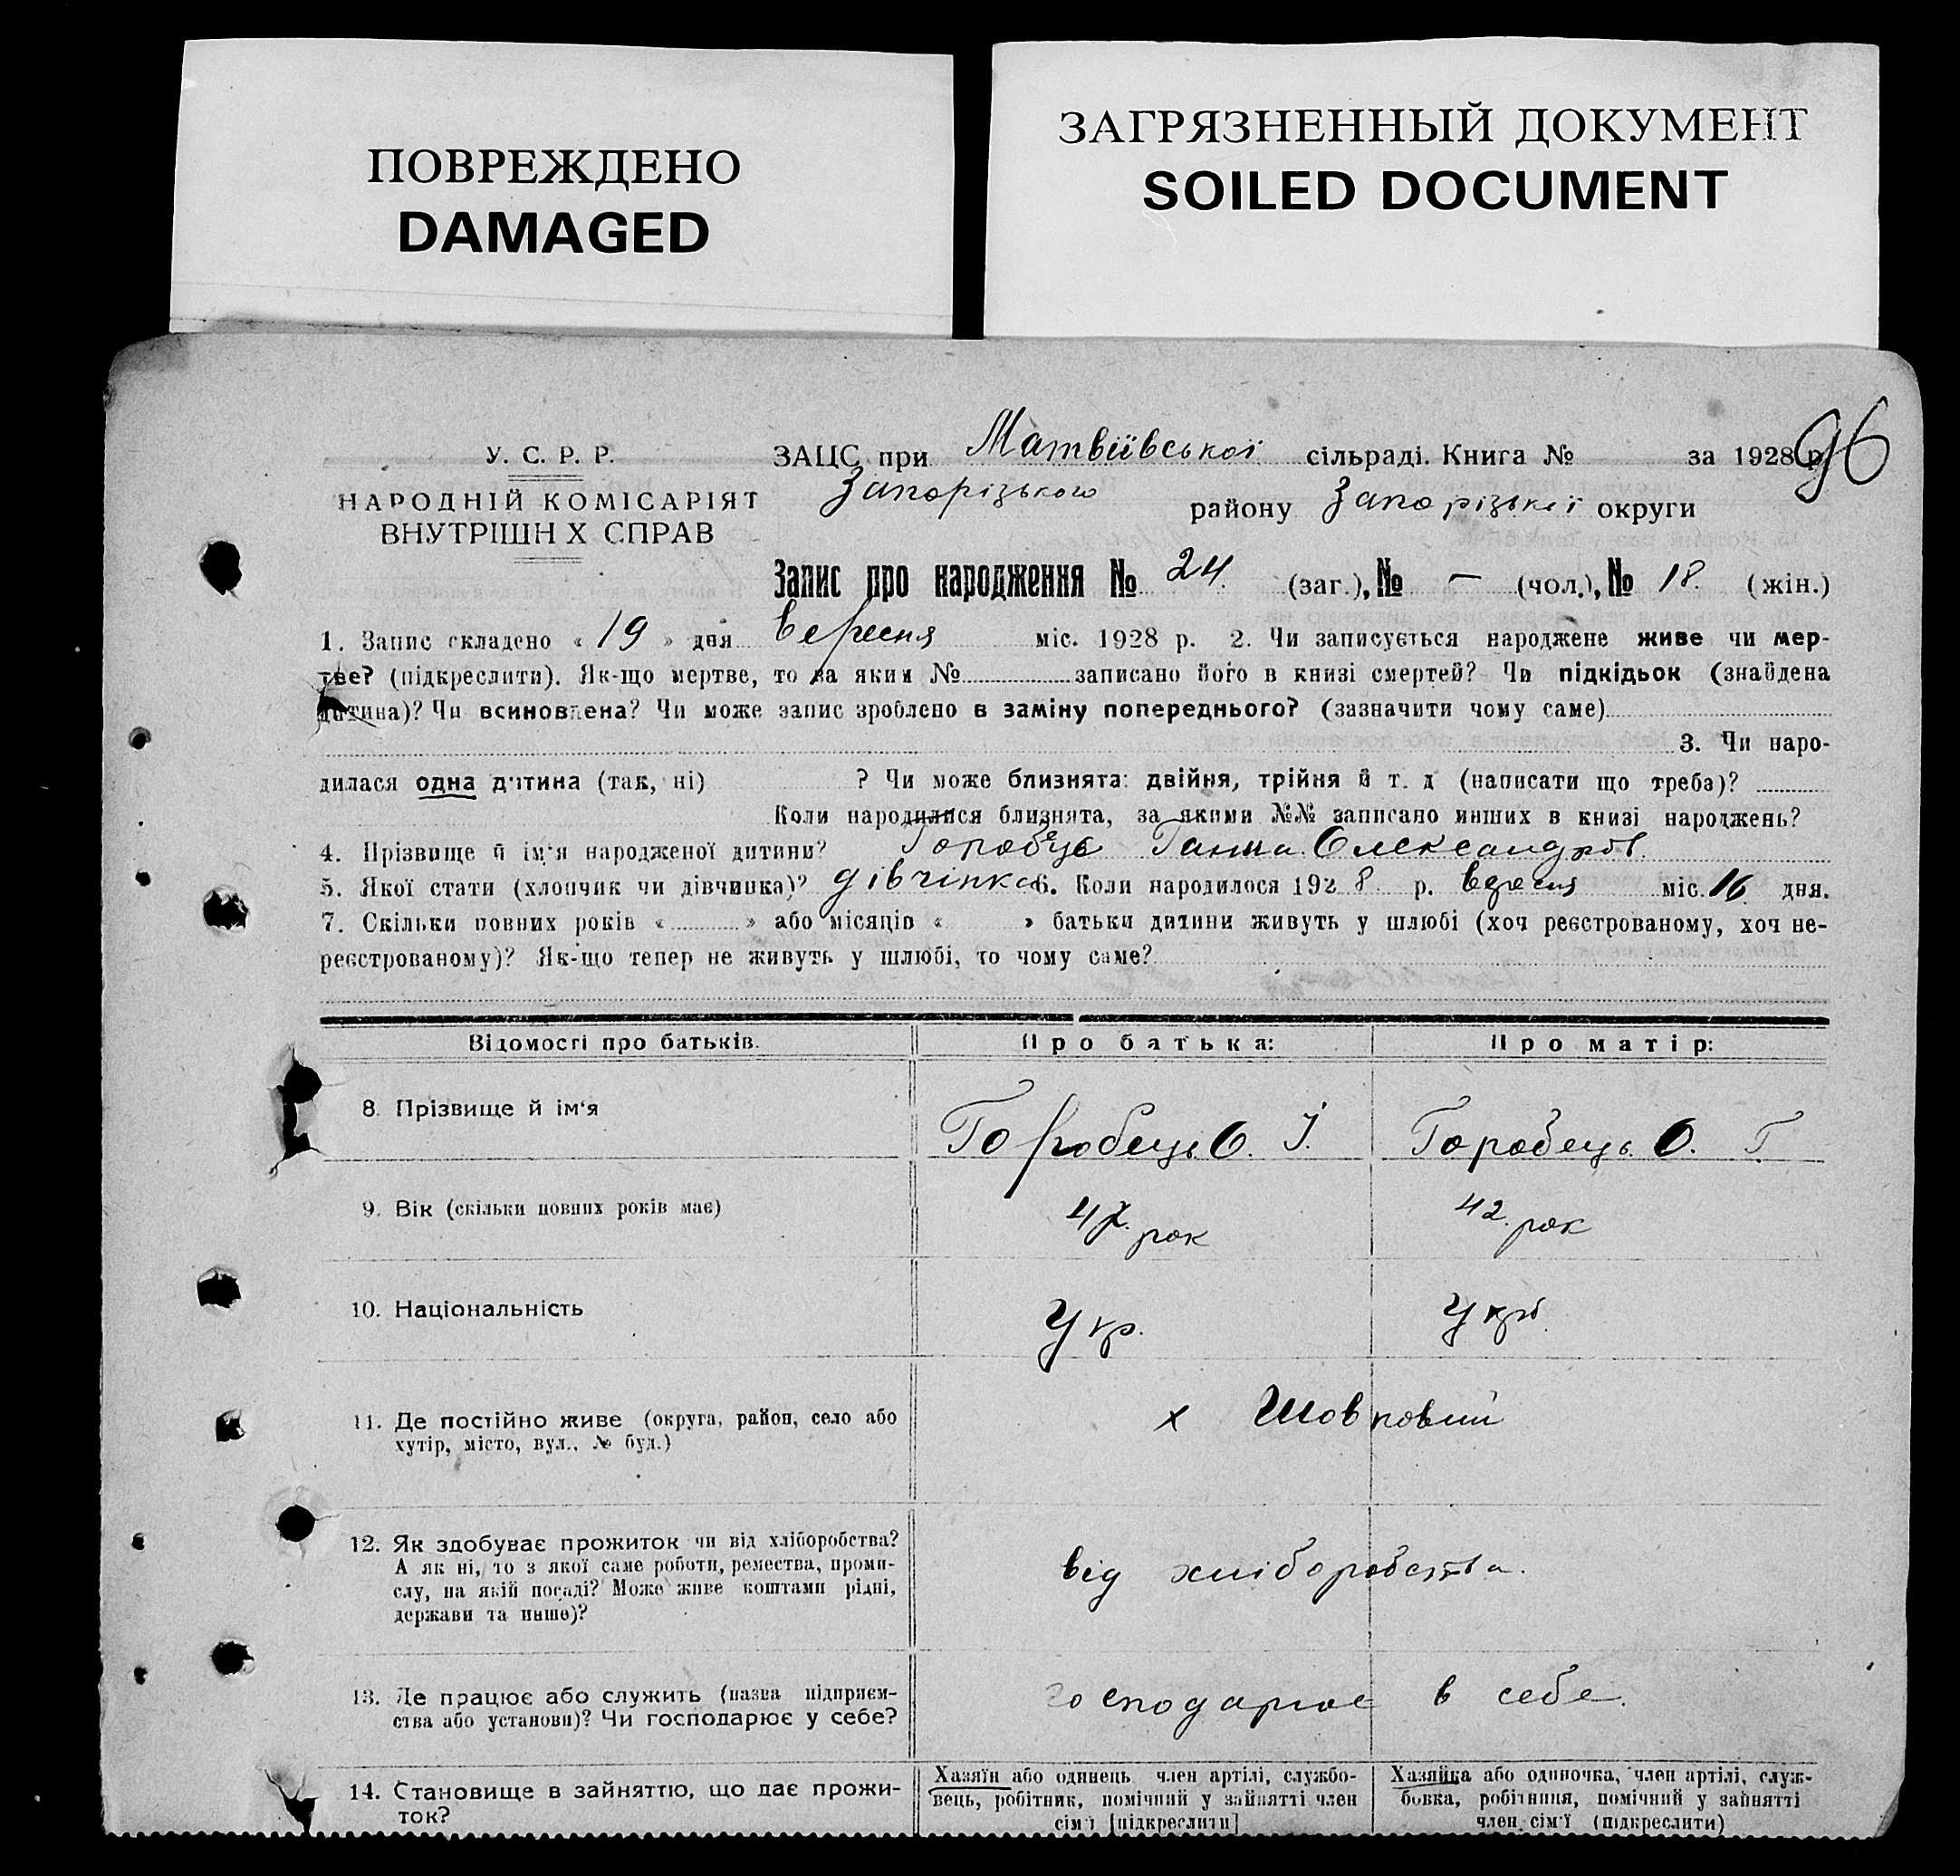 ПОВРЕЖДЕНО
DAMAGED
ЗАГРЯЗНЕННЫЙ ДОКУМЕНТ
SOILED DOCUMENT
96
У. С. Р. Р.
НАРОДНІЙ КОМІСАРІЯТ
ВНУТРІШН Х СПРАВ
ЗАЦС при Матвіївської сільраді. Книга № за 1928 р.
Запорізького району Запорізької округи
Запис про народження № 24. (заг.), № — (чол.), № 18. (жін.)
1. Запис складено « 19 » дня вересня міс. 1928 р. 2. Чи записується народжене живе чи мер-
тве? (підкреслити). Як-що мертве, то за яким № записано його в книзі смертей? Чи підкідьок (знайдена
дитина)? Чи всиновлена? Чи може запис зроблено в заміну попереднього? (зазначити чому саме)
3. Чи наро-
дилася одна дитина (так, ні) ? Чи може близнята: двійня, трійня й т. д (написати що треба)?
Коли народилися близнята, за якими №№ записано инших в книзі народжень?
4. Прізвище й ім'я народженої дитини? Горобець Ганна Олександров.
5. Якої стати (хлопчик чи дівчинка)? дівчінка 6. Коли народилося 1928 р. вересня міс. 16 дня.
7. Скільки повних років « » або місяців « » батьки дитини живуть у шлюбі (хоч реєстрованому, хоч не-
реєстрованому)? Як-що тепер не живуть у шлюбі, то чому саме?
Відомості про батьків.
Про батька:
Про матір:
8. Прізвище й ім'я
Горобець О. І.
Горобець О. Г.
9. Вік (скільки повних років має)
47. рок
42. рок
10. Національність
Укр.
Укр.
11. Де постійно живе (округа, район, село або
хутір, місто, вул., № буд.)
х Шовковий
12. Як здобуває прожиток чи від хліборобства?
А як ні, то з якої саме роботи, ремества, проми-
слу, на якій посаді? Може живе коштами рідні,
держави та инше)?
від хліборобства.
13. Де працює або служить (назва підприєм-
ства або установи)? Чи господарює у себе?
господарює в себе.
14. Становище в зайняттю, що дає прожи-
ток?
Хазяїн або одинець член артілі, службо-
вець, робітник, помічний у зайнятті член
сім'ї [підкреслити]
Хазяйка або одиночка, член артілі, служ-
бовка, робітниця, помічний у зайнятті
член сім'ї (підкреслити)